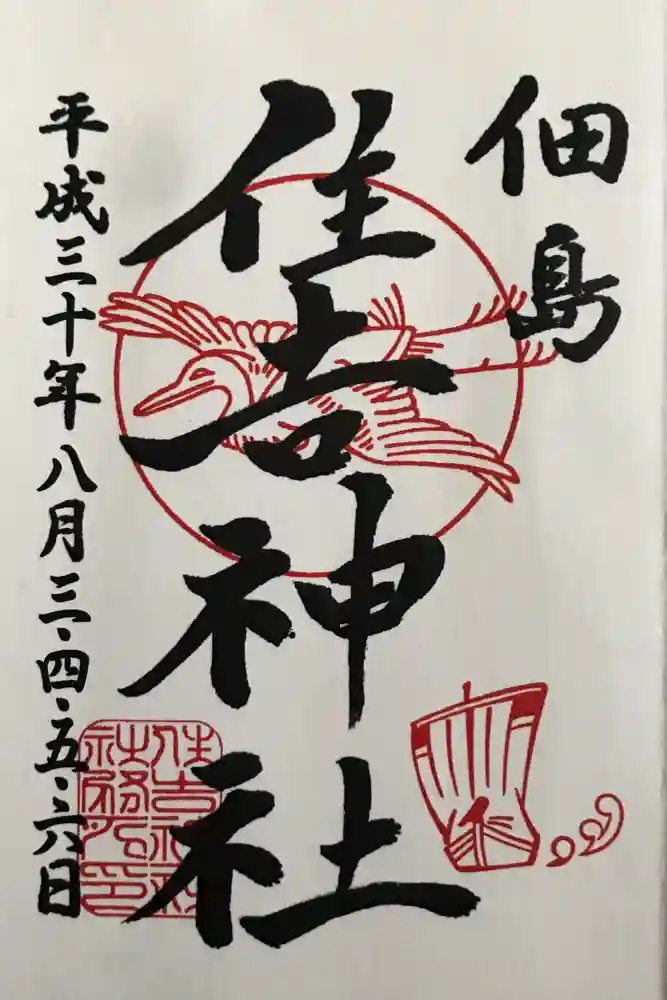 佃島
住吉神社
平成三十年八月三・四・五・六日
住吉神社
社務所印